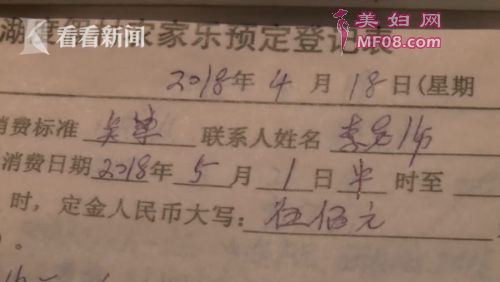 看看新闻
美妇网
MF08.com
湖 家乐预定登记表
2018年 4 月 18 日(星期
消费标准 联系人姓名 李
消费日期 2018年 5 月 1 日 时至
时, 定金人民币大写: 伍佰元
)。